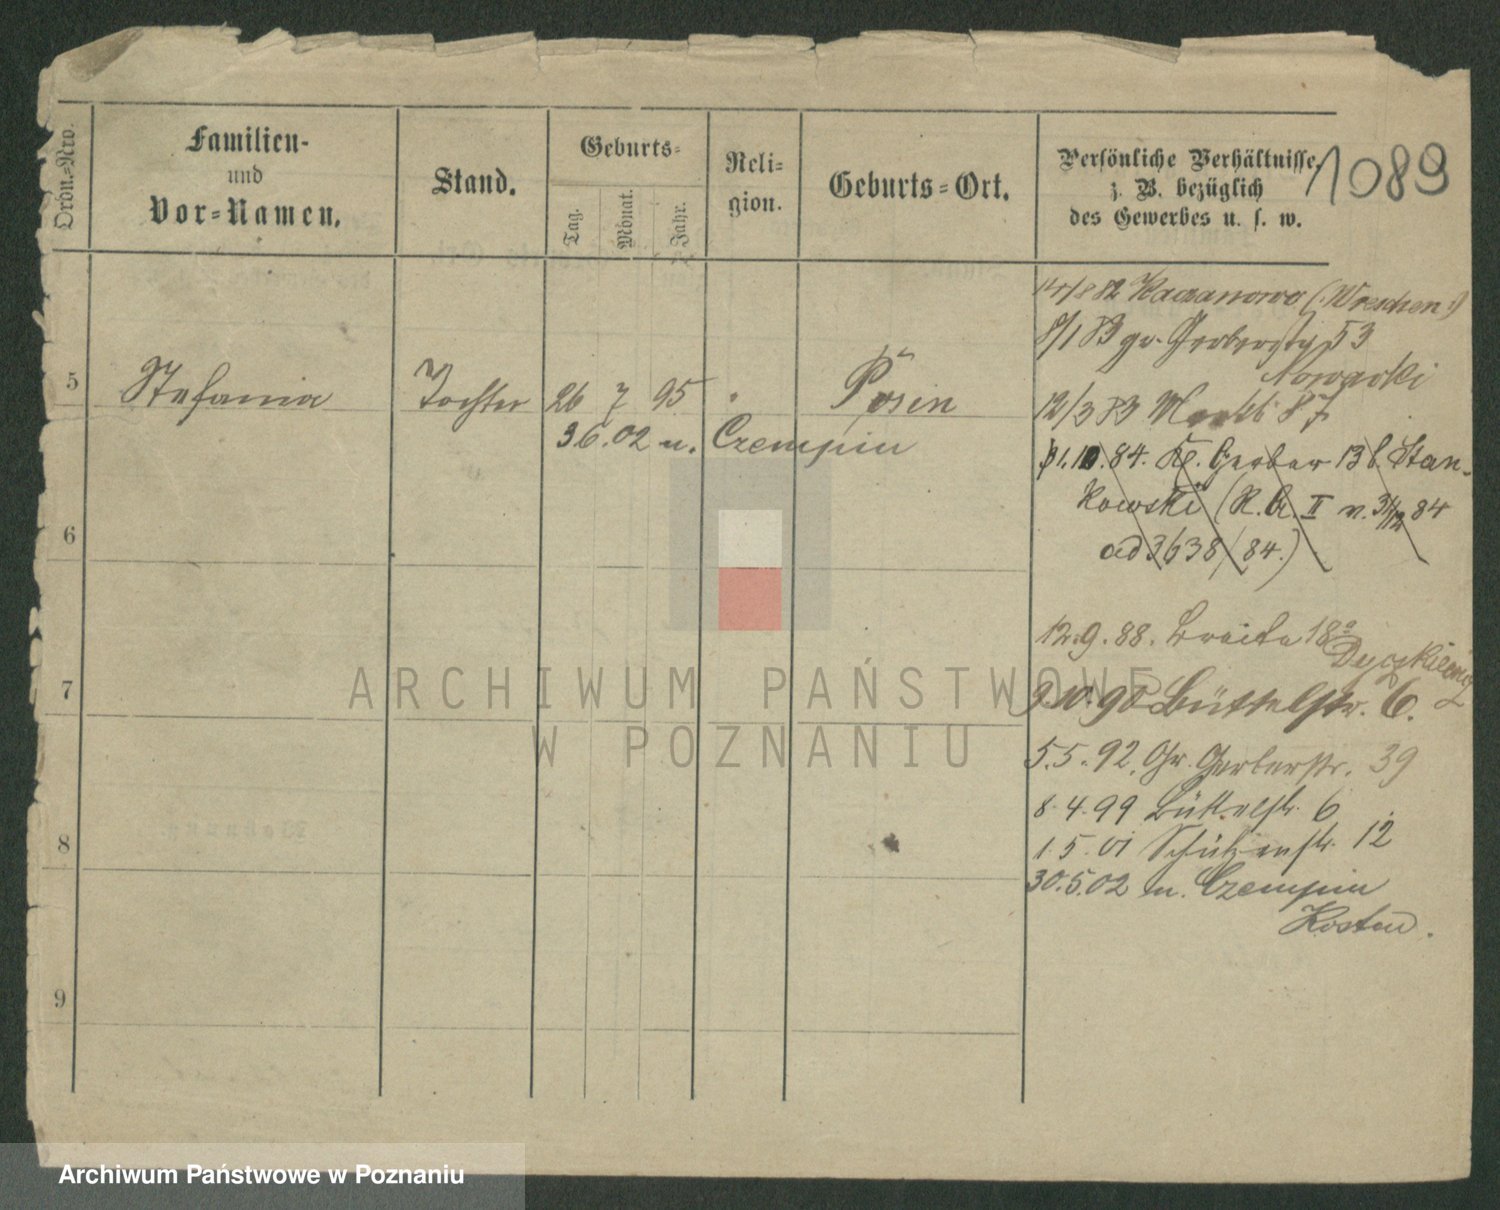 Ordn.=Nro.
Familien-
und
Vor=Namen.
Stand.
Geburts=
Tag.
Monat.
Jahr.
Reli=
gion.
Geburts=Ort.
Persönliche Verhältnisse,
z. B. bezüglich
des Gewerbes u. s. w.
1089
14/8 82 Kaczanowo (:Wreschen:)
8/1 83 gr. Gerberstr 53
Nowacki
5 Stefania Tochter 26 7 95 " Posen
12/3 83 Markt 87
3 6. 02 n. Czempin
1.10.84. Kl. Gerber 13b. Stan-
kowski (R. A. II v. 31/12 84
ad 3638/84.)
6
12.9.88. Breite 18a
7
9.10.90 Büttelstr. 6.
5.5.92. Gr. Gerberstr. 39
8.4.99 Büttelstr. 6
8
1.5.01 Schützenstr. 12
30.5.02 n. Czempin
Kosten.
9
ARCHIWUM PAŃSTWOWE
W POZNANIU
Archiwum Państwowe w Poznaniu